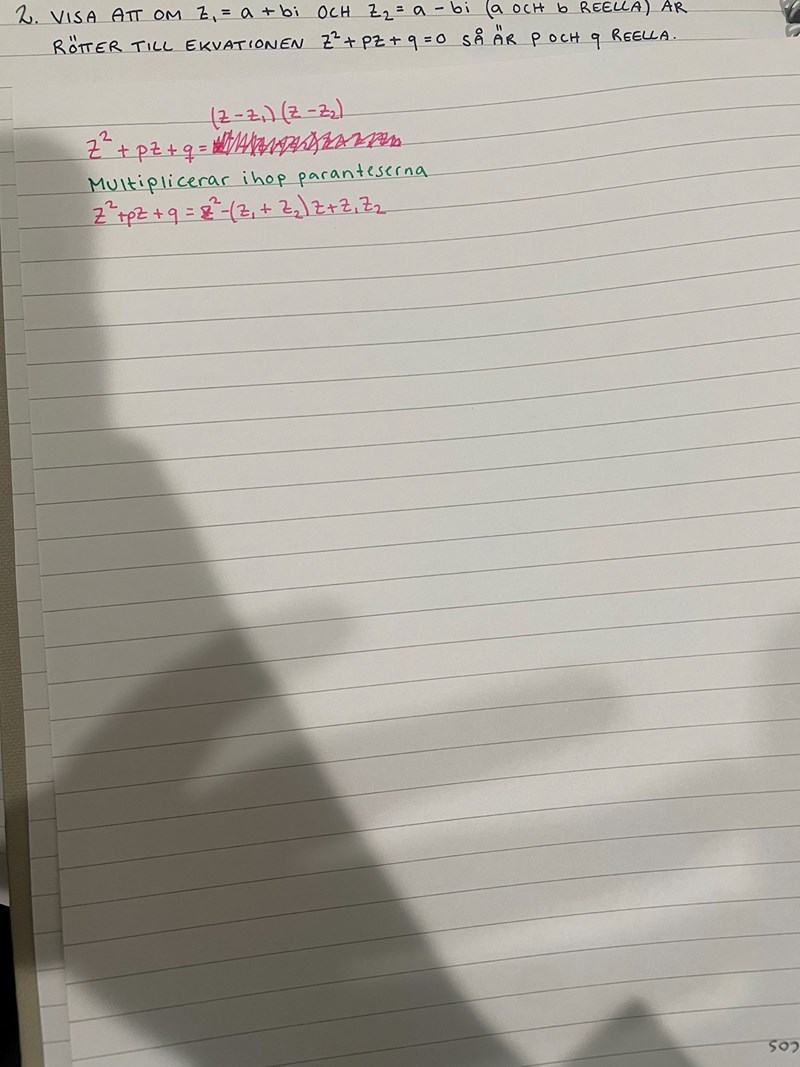 2. VISA ATT OM z₁ = a + bi OCH z₂ = a - bi (a OCH b REELLA) ÄR
RÖTTER TILL EKVATIONEN z² + pz + q = 0 SÅ ÄR p OCH q REELLA.
(z - z₁)(z - z₂)
z² + pz + q =
Multiplicerar ihop paranteserna
z² + pz + q = z² - (z₁ + z₂)z + z₁z₂
cos